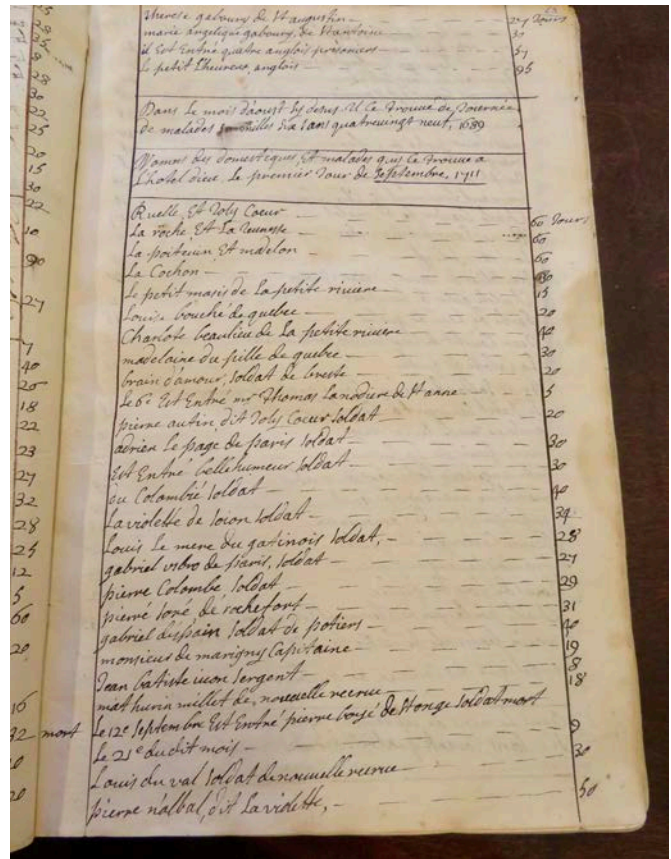 therese gaboury de St augustin — 27 Jours
marie angelique gaboury, de St antoine 30
il Est Entré quatre anglois prisoniers — 57
Le petit L'heureux, anglois — 95
Dans Le mois D'aoust cy desus Il Ce Trouve de Journée
de malades milles Six Cans quatrevingt neuf, 1689
Nomms des domestiques, Et malades qui Ce Trouve a
L'hotel dieu, Le premier Jour de Septembre, 1711
Ruelle, Et Joly Coeur 60 Jours
La roche Et La Jeunesse 60
La poitevin Et madelon 60
La Cochon
Le petit maris de La petite riviere 15
Louise bouché de quebec 20
Charlote beaulieu de La petite riviere 40
madelaine du pille de quebec 30
brain d'amour, Soldat de breste 20
Le 6e Est Entré mr Thomas Lanodiere de St anne 5
pierre autin, dit Joly Coeur Soldat 20
adrien Le page de paris Soldat 30
Est Entré bellehumeur Soldat 30
ou Colombié Soldat 40
La violette de Soldat 34
Louis Le mere du gatinois Soldat, 28
gabriel de paris, Soldat 27
pierre Colombe, Soldat 29
pierre de rochefort 31
gabriel despain Soldat de potiers 40
monsieur de marigny Capitaine 19
Jean batiste Sergent 8
mathurin millet de, nouvelle recrue 18
Le 12e Septembre Est Entré pierre de St onge Soldat mort
Le 21e dudit mois 9
Louis du val Soldat de nouvelle recrue 30
pierre nalbal, dit La violette, 50
28
30
22
25
20
15
30
22
10
90
27
7
40
20
18
22
23
27
32
28
25
12
5
60
20
16
32 mort
20